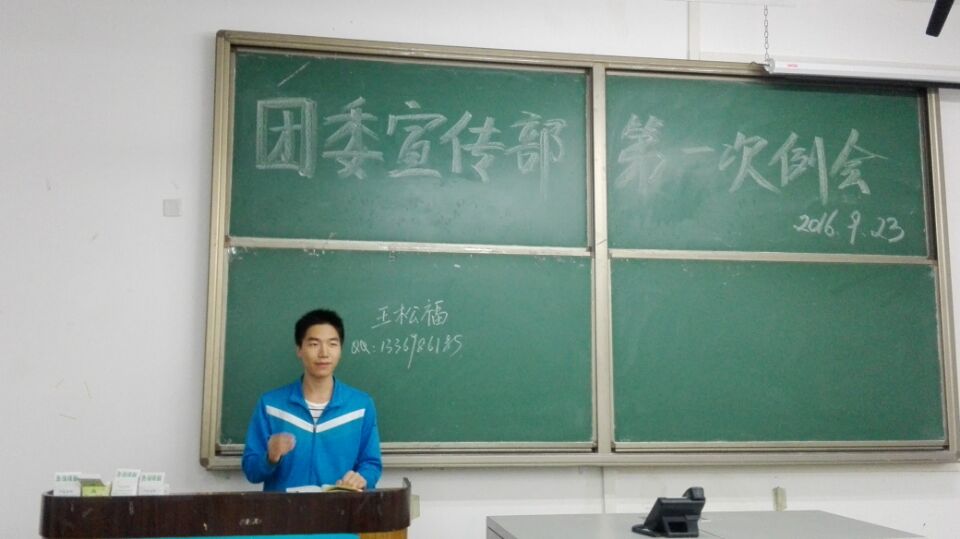 团委宣传部 第一次例会
2016.9.23
王松福
QQ: